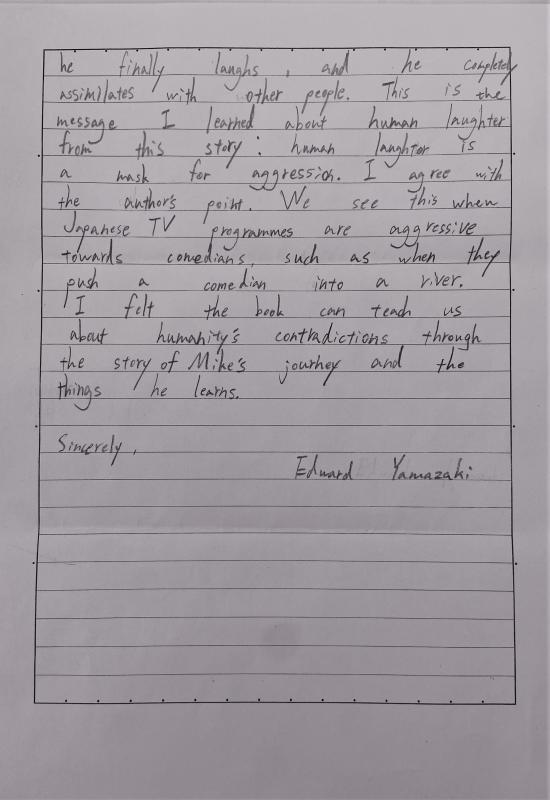 he finally laughs, and he completely
assimilates with other people. This is the
message I learned about human laughter
from this story: human laughter is
a mask for aggression. I agree with
the author's point. We see this when
Japanese TV programmes are aggressive
towards comedians, such as when they
push a comedian into a river.
I felt the book can teach us
about humanity's contradictions through
the story of Mike's journey and the
things he learns.
Sincerely,
Edward Yamazaki